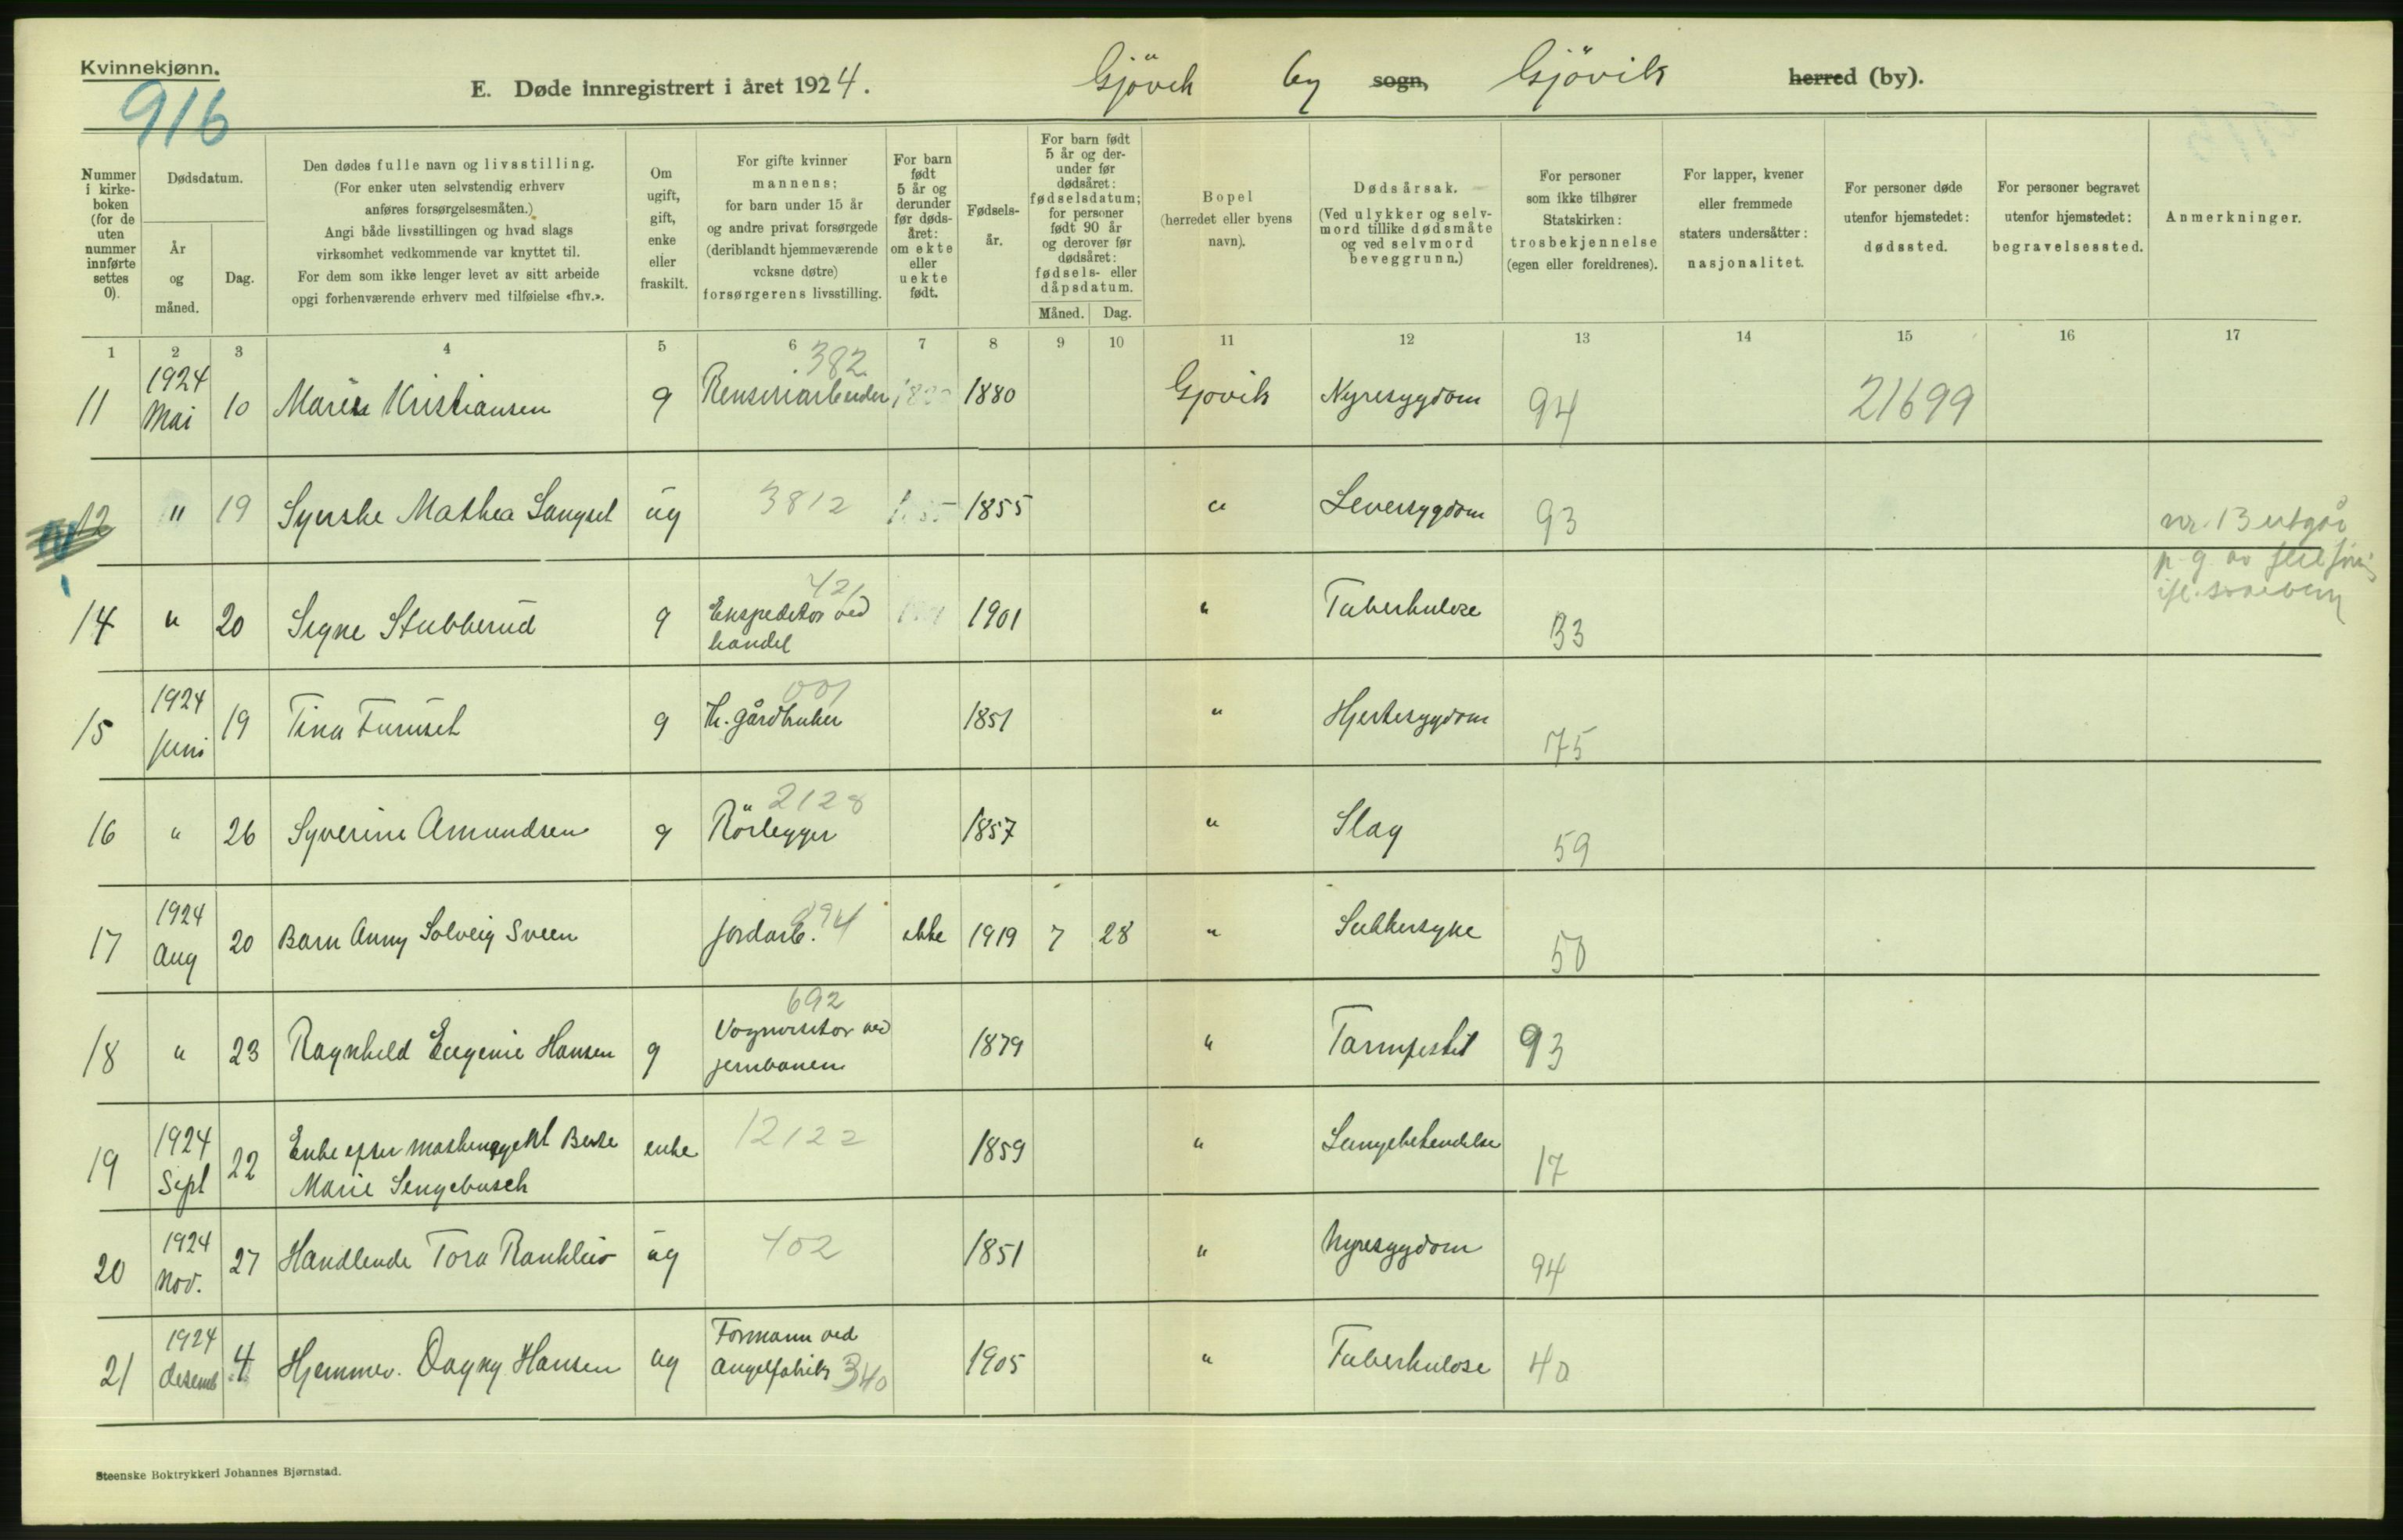 Kvinnekjønn.
916
E. Døde innregistrert i året 1924.
Gjövik by sogn, Gjövik herred (by).
Nummer i kirkeboken (for de uten nummer innførte settes 0).
Dødsdatum.
År og måned.
Dag.
Den dødes fulle navn og livsstilling.
(For enker uten selvstendig erhverv
anføres forsørgelsesmåten.)
Angi både livsstillingen og hvad slags
virksomhet vedkommende var knyttet til.
For dem som ikke lenger levet av sitt arbeide
opgi forhenværende erhverv med tilføielse «fhv.».
Om
ugift,
gift,
enke
eller
fraskilt.
For gifte kvinner
mannens;
for barn under 15 år
og andre privat forsørgede
(deriblandt hjemmeværende
voksne døtre)
forsørgerens livsstilling.
For barn
født
5 år og
derunder
før døds-
året:
om ekte
eller
uekte
født.
Fødsels-
år.
For barn født
5 år og der-
under før
dødsåret:
fødselsdatum;
for personer
født 90 år
og derover før
dødsåret:
fødsels- eller
dåpsdatum.
Måned. Dag.
Bopel
(herredet eller byens
navn).
Dødsårsak.
(Ved ulykker og selv-
mord tillike dødsmåte
og ved selvmord
beveggrunn.)
For personer
som ikke tilhører
Statskirken:
trosbekjennelse
(egen eller foreldrenes).
For lapper, kvener
eller fremmede
staters undersåtter:
nasjonalitet.
For personer døde
utenfor hjemstedet:
dødssted.
For personer begravet
utenfor hjemstedet:
begravelsessted.
Anmerkninger.
1 2 3 4 5 6 7 8 9 10 11 12 13 14 15 16 17
382
11 1924 Mai 10 Marie Kristiansen g Renseriarbeider 1880 1880 Gjøvik Nyresygdom 94 21699
12 " 19 Syerske Mathea Langset ug 3812 1855 1855 " Leversygdom 93
nr. 13 utgår
p. g. av
421
14 " 20 Signe Stubberud g Ekspeditør ved handel 1901 1901 " Tuberkulose 33
001
15 1924 Juni 19 Tina Furuset g fh. gårdbruker 1851 " Hjertesygdom 75
2128
16 " 26 Syverine Amundsen g Rörlegger 1857 " Slag 59
094
17 1924 Aug 20 Barn Anny Solveig Sveen jordarb. ekte 1919 7 28 " Sukkersyke 50
692
18 " 23 Ragnhild Eugenie Hansen g Vognvisitør ved jernbanen 1879 " Tarmfistel 93
19 1924 Sept 22 Enke efter Berte Marie Sengebusch enke 12122 1859 " Lungebetendelse 17
20 1924 Nov. 27 Handlende Tora Rankleiv ug 402 1851 " Nyresygdom 94
21 1924 desemb 4 Hjemmev. Dagny Hansen ug Formann ved Angelfabrik 340 1905 " Tuberkulose 40
Steenske Boktrykkeri Johannes Bjørnstad.